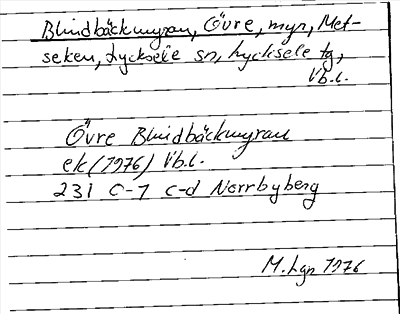 Blindbäckmyran, Övre, myr, Met-
seken, Lycksele sn, Lycksele tg,
Vb.l.
Övre Blindbäckmyran
ek (1976) Vb.l.
231 C-7 c-d Norrbyberg
M.Lgn 1976